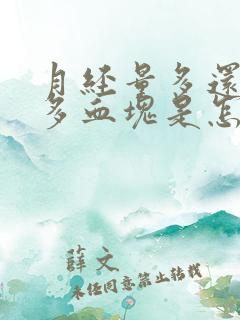 月經量多還
多血塊是怎
薛文
未經同意禁止轉載